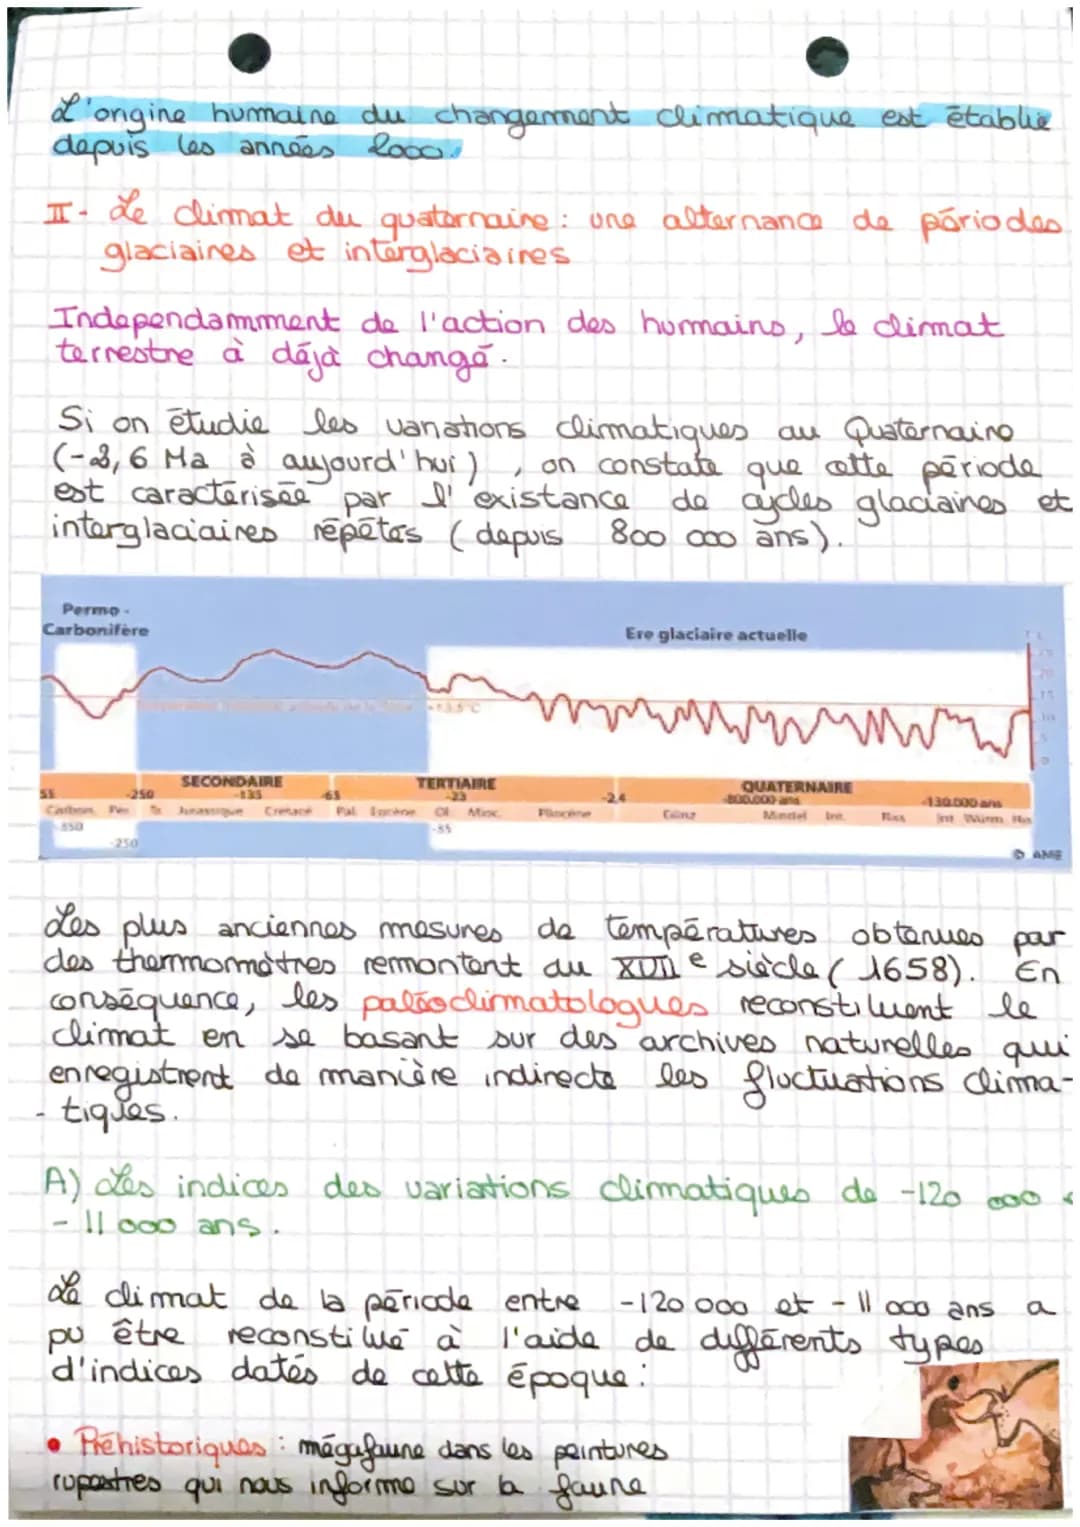 L'origine humaine du changement climatique est établie
depuis les années 2000.
II- Le climat du quaternaire : une alternance de périodes
glaciaires et interglaciaires
Independamment de l'action des humains, le climat
terrestre à déjà changé.
Si on étudie les variations climatiques au Quaternaire
(-2,6 Ma à aujourd'hui), on constate que cette période
est caractérisée par l'existance de cycles glaciaires et
interglaciaires répétés (depuis 800 000 ans).
Permo-
Carbonifère
Ere glaciaire actuelle
20
15
10
5
0
+13.5°C
SECONDAIRE
TERTIAIRE
QUATERNAIRE
-250
-135
-65
-23
-2,4
-800.000 ans
-130.000 ans
Carbon. Per. Tr. Jurassique Crétacé Pal. Eocène Ol. Mioc. Pliocène Günz Mindel Int. Riss Int Würm Ho
-350
-35
-250
© AME
Les plus anciennes mesures de températures obtenues par
des thermomètres remontent au XVII e siècle (1658). En
conséquence, les paléoclimatologues reconstituent le
climat en se basant sur des archives naturelles qui
enregistrent de manière indirecte les fluctuations clima-
- tiques.
A) Les indices des variations climatiques de -120 000
- 11 000 ans.
Le climat de la période entre -120 000 et - 11 000 ans a
pu être reconstitué à l'aide de différents types
d'indices datés de cette époque :
• Préhistoriques : mégafaune dans les peintures
rupestres qui nous informe sur la faune